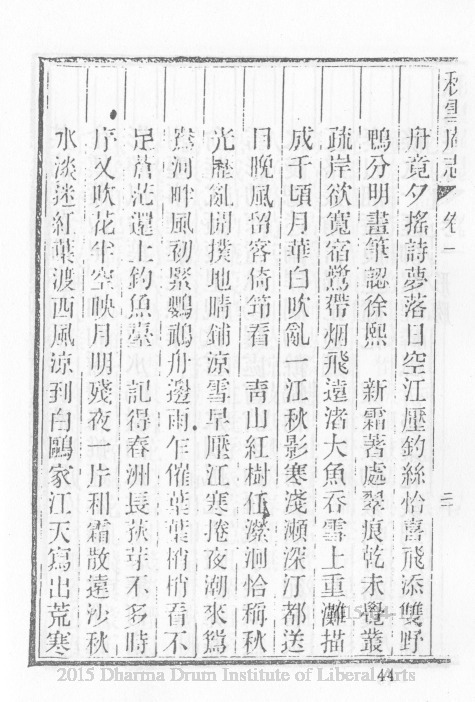 秋雪庵志 卷一 二
舟竟夕搖詩夢落日空江壓釣絲恰喜飛添雙野
鴨分明畫筆認徐熙 新霜著處翠痕乾未覺叢
疏岸欲寬宿鷺帶烟飛遠渚大魚吞雪上重灘描
成千頃月華白吹亂一江秋影寒淺瀨深汀都送
目晚風留客倚笻看 靑山紅樹任縈洄恰稱秋
光歷亂開撲地晴鋪涼雪早壓江寒捲夜潮來鴛
鴦洞畔風初緊鸚鵡舟邊雨乍催葉葉梢梢看不
足蒼茫還上釣魚臺 記得春洲長荻芽不多時
序又吹花半空映月明殘夜一片和霜散遠沙秋
水淡迷紅葉渡西風涼到白鷗家江天寫出荒寒
2015 Dharma Drum Institute of Liberal Arts
44